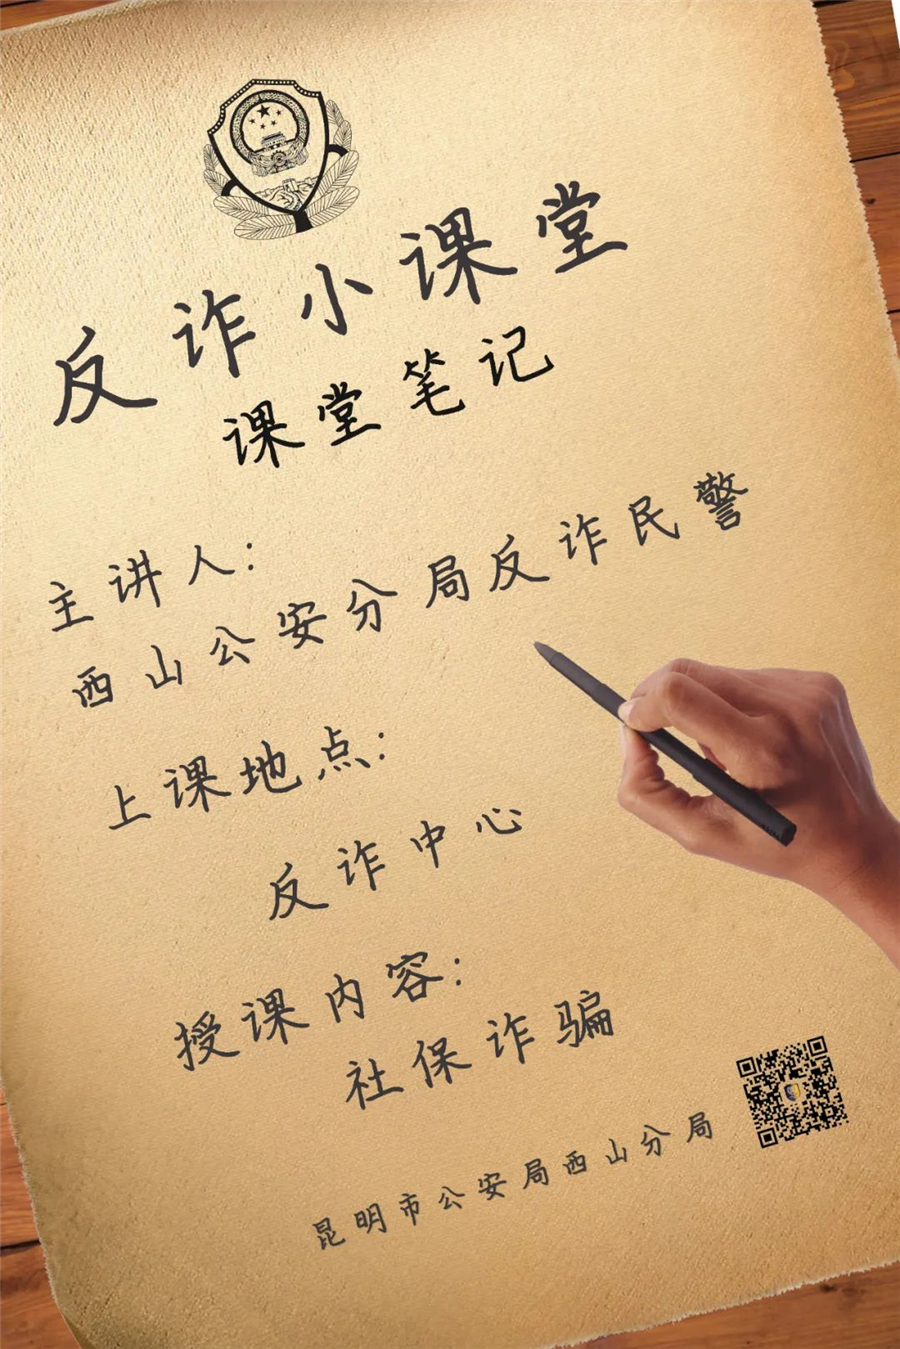 反诈小课堂
课堂笔记
主讲人:
西山公安分局反诈民警
上课地点:
反诈中心
授课内容:
社保诈骗
昆明市公安局西山分局